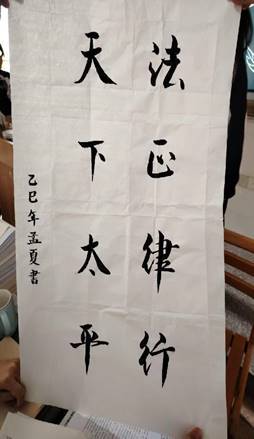 法正律行
天下太平
乙巳年孟夏書